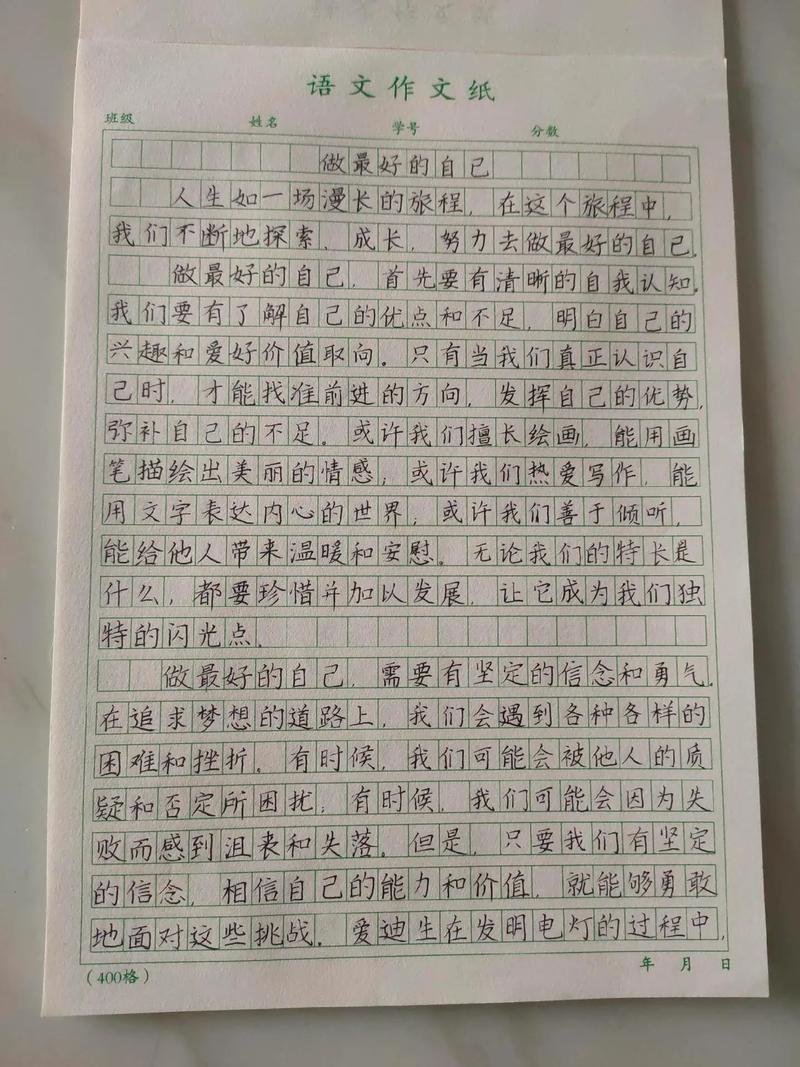 语文作文纸
班级 姓名 学号 分数
做最好的自己
人生如一场漫长的旅程，在这个旅程中，
我们不断地探索、成长，努力去做最好的自己。
做最好的自己，首先要有清晰的自我认知。
我们要有了解自己的优点和不足，明白自己的
兴趣和爱好价值取向。只有当我们真正认识自
己时，才能找准前进的方向，发挥自己的优势，
弥补自己的不足。或许我们擅长绘画，能用画
笔描绘出美丽的情感；或许我们热爱写作，能
用文字表达内心的世界；或许我们善于倾听，
能给他人带来温暖和安慰。无论我们的特长是
什么，都要珍惜并加以发展，让它成为我们独
特的闪光点。
做最好的自己，需要有坚定的信念和勇气。
在追求梦想的道路上，我们会遇到各种各样的
困难和挫折。有时候，我们可能会被他人的质
疑和否定所困扰；有时候，我们可能会因为失
败而感到沮丧和失落。但是，只要我们有坚定
的信念，相信自己的能力和价值，就能够勇敢
地面对这些挑战。爱迪生在发明电灯的过程中，
（400格） 年 月 日